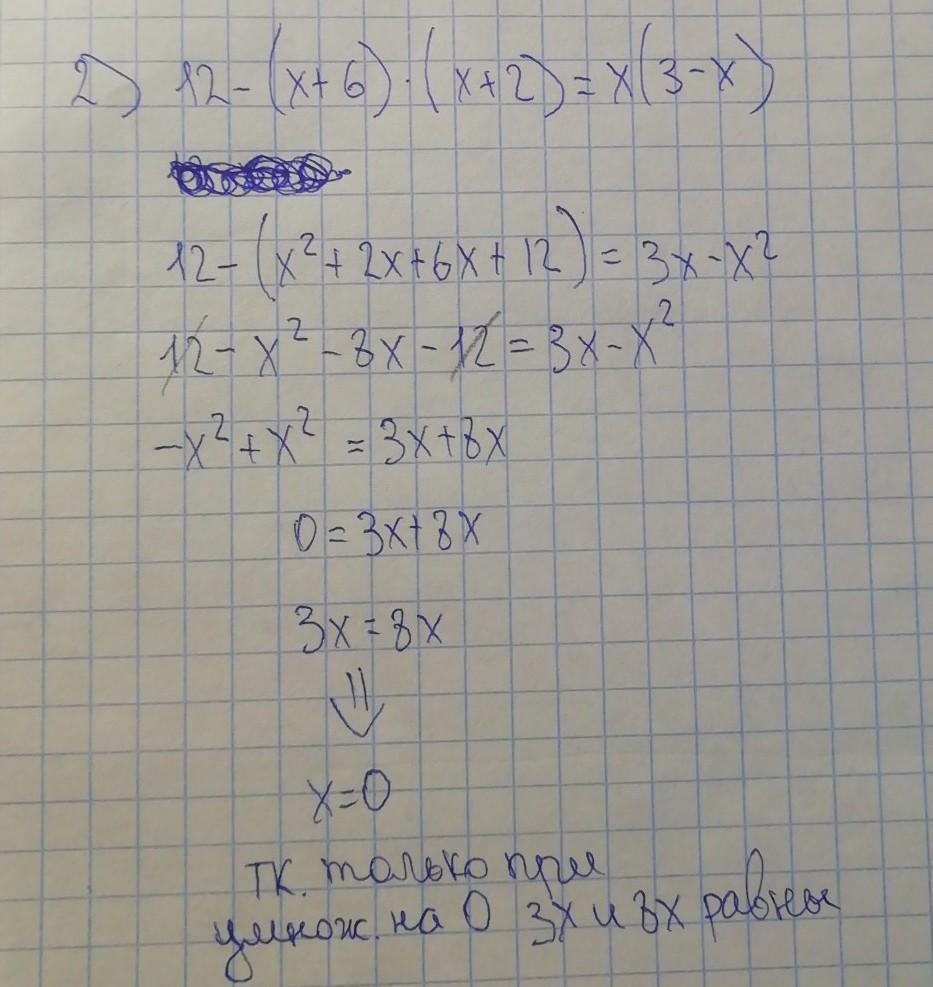 2) 12-(x+6)·(x+2)=x(3-x)
12-(x²+2x+6x+12)=3x-x²
12-x²-8x-12=3x-x²
-x²+x² =3x+8x
0=3x+8x
3x=8x
⇓
x=0
тк. только при
умнож. на 0 3х и 8х равны